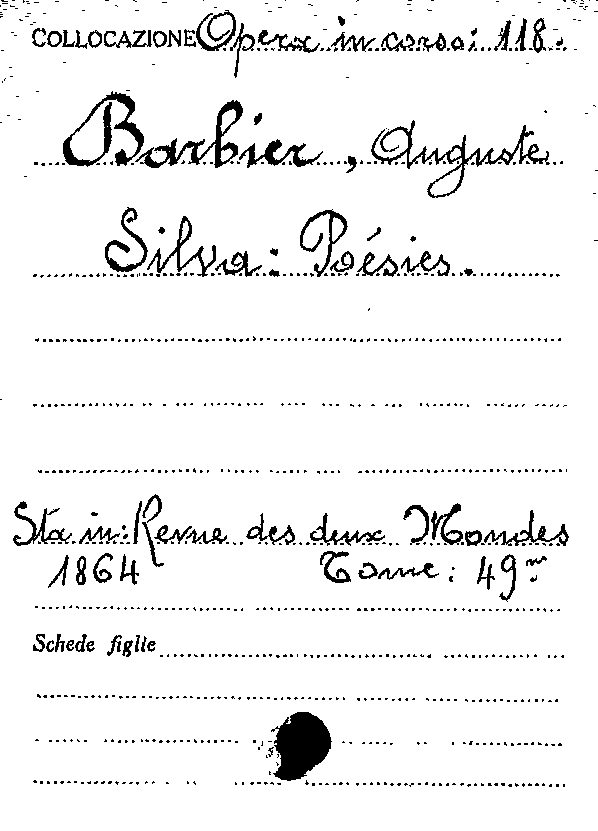 COLLOCAZIONE Opera in corso: 118.
Barbier, Auguste
Silva: Poésies.
Sta in: Revue des deux Mondes
1864 Tome: 49me
Schede figlie